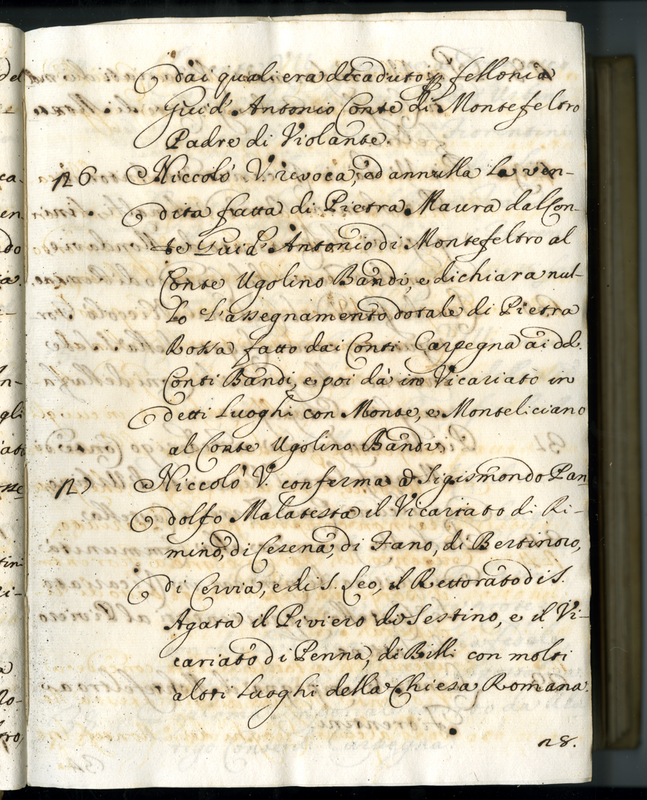 dai quali era decaduto p fellonia
Guid' Antonio Conte di Montefeltro
Padre di Violante.
26 Niccolò V. rivoca, ed annulla la ven-
dita fatta di Pietra Maura dal Con-
te Guid' Antonio di Montefeltro al
Conte Ugolino Bandi, e dichiara nul-
lo l'assegnamento dotale di Pietra
Rossa fatto dai Conti Carpegna ai dd.
Conti Bandi, e poi dà in Vicariato in
detti Luoghi con Monte, e Monteliciano
al Conte Ugolino Bandi.
27 Niccolò V. conferma a Sigismondo Pan-
dolfo Malatesta il Vicariato di Ri-
mino, di Cesena, di Fano, di Bertinoro,
di Cervia, e di S. Leo, il Rettorato di S.
Agata il Piviero di Sestino, e il Vi-
cariato di Penna, di Billi con molti
altri Luoghi della Chiesa Romana.
28.